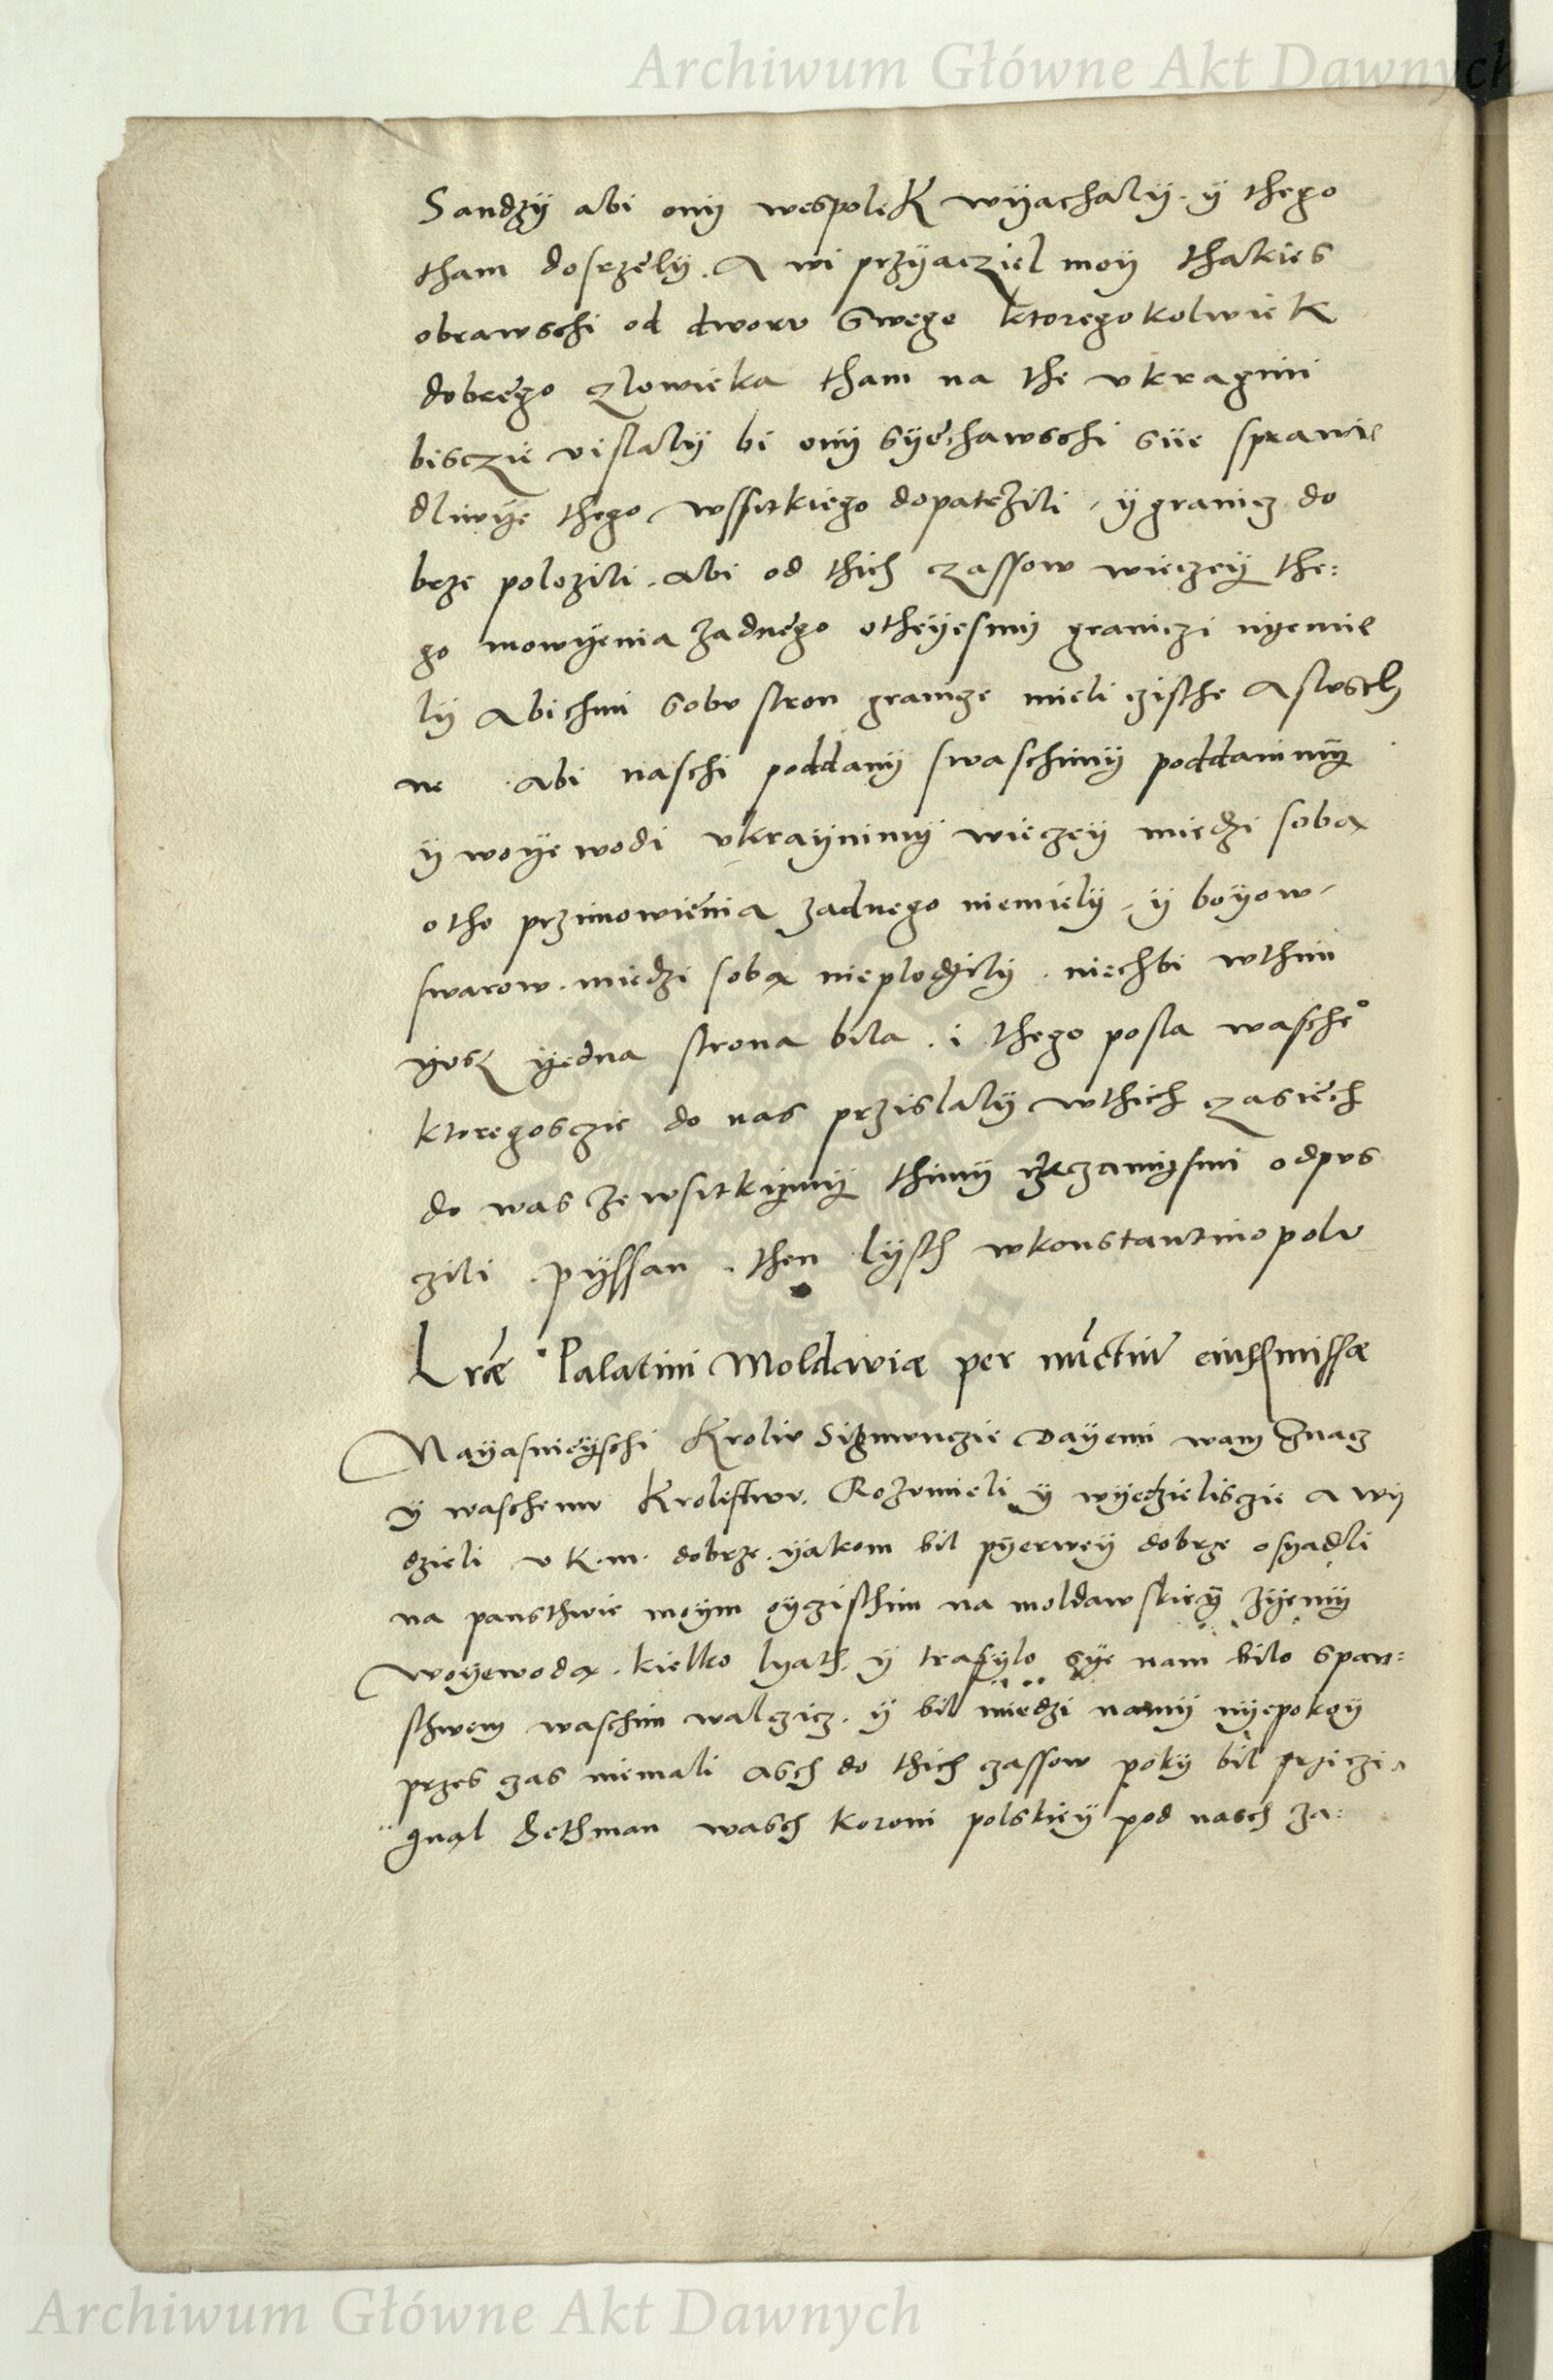 Archiwum Główne Akt Dawnych
Sandzÿ abi onÿ wespoleK wÿachalÿ . ÿ thego
tham dosrzelÿ . A wi przÿacziel moÿ thakies
obrawschi od dworv Swego ktoregokolwieK
dobrego człowieka tham na the vkragini
bisczie vislalÿ bi onÿ sÿechawschi sие sprawie
dliwÿe thego wssitkiego dopatrzili , ÿ granicz do
brze polozili . abi od thich czassow wieczeÿ the:
go mowÿenia zadnego otheÿesmÿ graniczi nyemie
lÿ Abichmi sobv stron granicze mieli czisthe A slvsch
ne . abi naschi poddanÿ swaschimÿ poddanimÿ
ÿ woÿewodi vkraÿnimÿ wieczeÿ miedzi soba
othe przimowienia zadnego niemielÿ , ÿ boÿow ,
swarow . miedzi soba nieplodzilÿ . niechbi wthim
ÿvsz ÿedna strona bila . i thego posla wasche°
ktoregosczie do nas przislalÿ wthich czasiech
do was ze wsitkÿmÿ thimÿ rzeczamÿsmi odpvs
czili . pÿssan . then lÿsth wkonstantinopolv
Lrae Palatini Moldaviæ per nuctiu eiusdmissæ
Naÿasnieÿschi Kroliv Sigmvnczie Daÿemi wam Znacz
ÿ waschemv Krolestwv . Rozvmieli ÿ wÿedzielisczie a wÿ
dzieli v K. m. dobrze . ÿakom bil pÿerweÿ dobrze osÿadli
na pansthwie moÿm oÿczisthim na moldawskieÿ zÿemÿ
woÿewoda . kielko lyath . ÿ trafÿlo sÿe nam bilo span:
sthwem waschim walczicz . ÿ bil miedzi namÿ nÿepokoÿ
przes czas niemali asch do thich czassow pokÿ bil przicziā
gnal Hethman wasch koroni polskieÿ pod nasch za:
Archiwum Główne Akt Dawnych